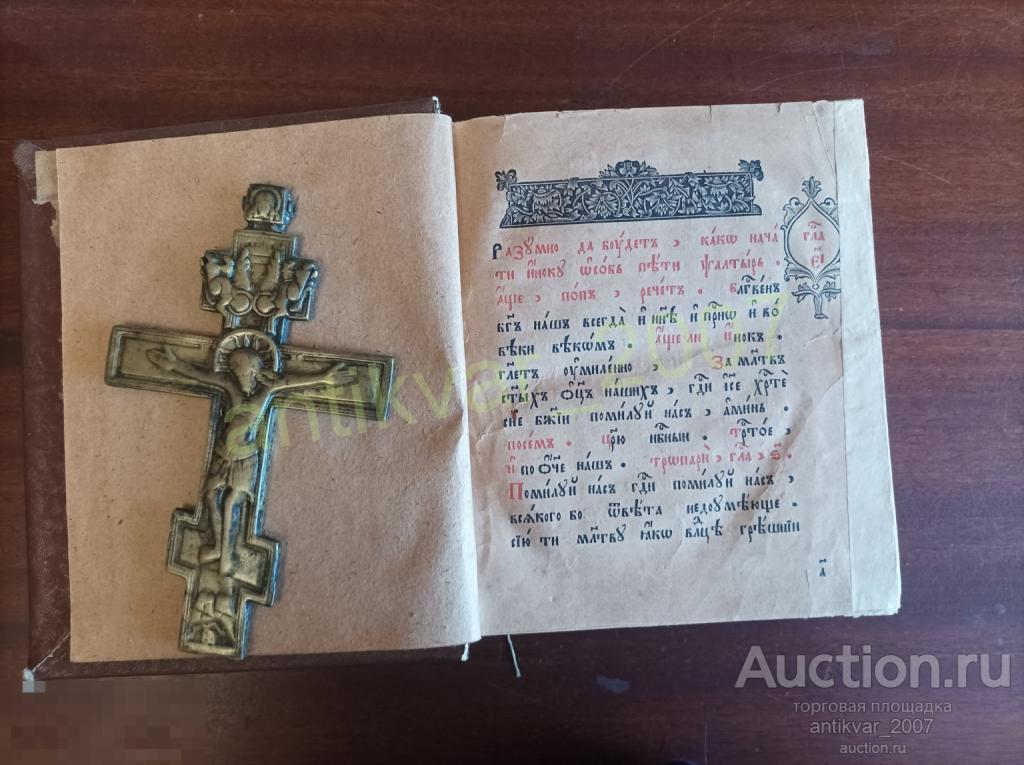 Разꙋмно да боꙋ́детъ , ка́кѡ нача́
ти и҆́нокꙋ ѡ҆со́бь пѣ́ти ѱалты́рь .
а҆́ще , по́пъ , рече́тъ . бл҃гве́нъ
бг҃ъ на́шъ всегда̀ и҆ ны́нѣ и҆ при́сно и҆ во́
вѣ́ки вѣко́мъ . а҆́ще ли и҆́нокъ
гл҃етъ оу҆миле́нно , За мл҃твъ
ст҃ы́хъ ѻ҆ц҃ъ на́шихъ , гд҃и і҆с҃е хр҃те
сн҃е бж҃їи поми́лꙋй на́съ , а҆ми́нь .
посе́мъ . цр҃ю нб҃ныи . трт҃о́е ,
и҆ по ѻ҆́ч҃е на́шъ . трѡпарѝ , гла́ , ѕ҃ .
Поми́лꙋй на́съ гд҃и поми́лꙋй на́съ ,
вся́кого бо ѿвѣ́та недоꙋмѣ́юще .
сїю́ ти мл҃твꙋ ꙗ҆́кѡ вл҃цѣ грѣ́шнїи
гла́
є҃і
а҃
antikvar_2007
Auction.ru
торговая площадка
antikvar_2007
auction.ru